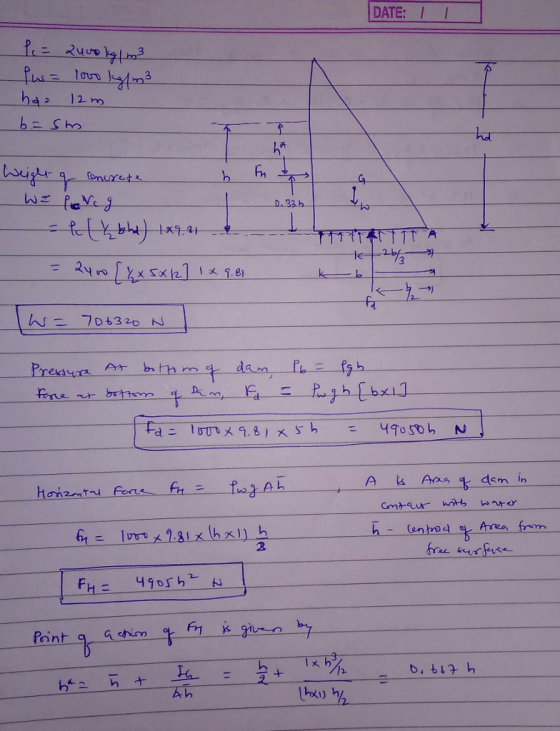 DATE: / /
ρc = 2400 kg/m³
ρw = 1000 kg/m³
hd = 12 m
b = 5 m
Weight of concrete
W = ρc Vc g
= ρc (1/2 b hd) 1 x 9.81
= 2400 [1/2 x 5 x 12] 1 x 9.81
W = 706320 N
h
h*
FH
0.33h
G
W
hd
A
2b/3
b
b/2
Fd
Pressure At bottom of dam, Pb = ρgh
Force at bottom of Dam, Fd = ρw g h [b x 1]
Fd = 1000 x 9.81 x 5 h = 49050h N
Horizontal Force FH = ρw g A h̄ , A is Area of dam in
contact with water
h̄ - centroid of Area from
free surface
FH = 1000 x 9.81 x (h x 1) h/2
FH = 4905h² N
Point of action of FH is given by
h* = h̄ + IG/Ah̄ = h/2 + (1 x h³/12)/((hx1) h/2) = 0.667 h